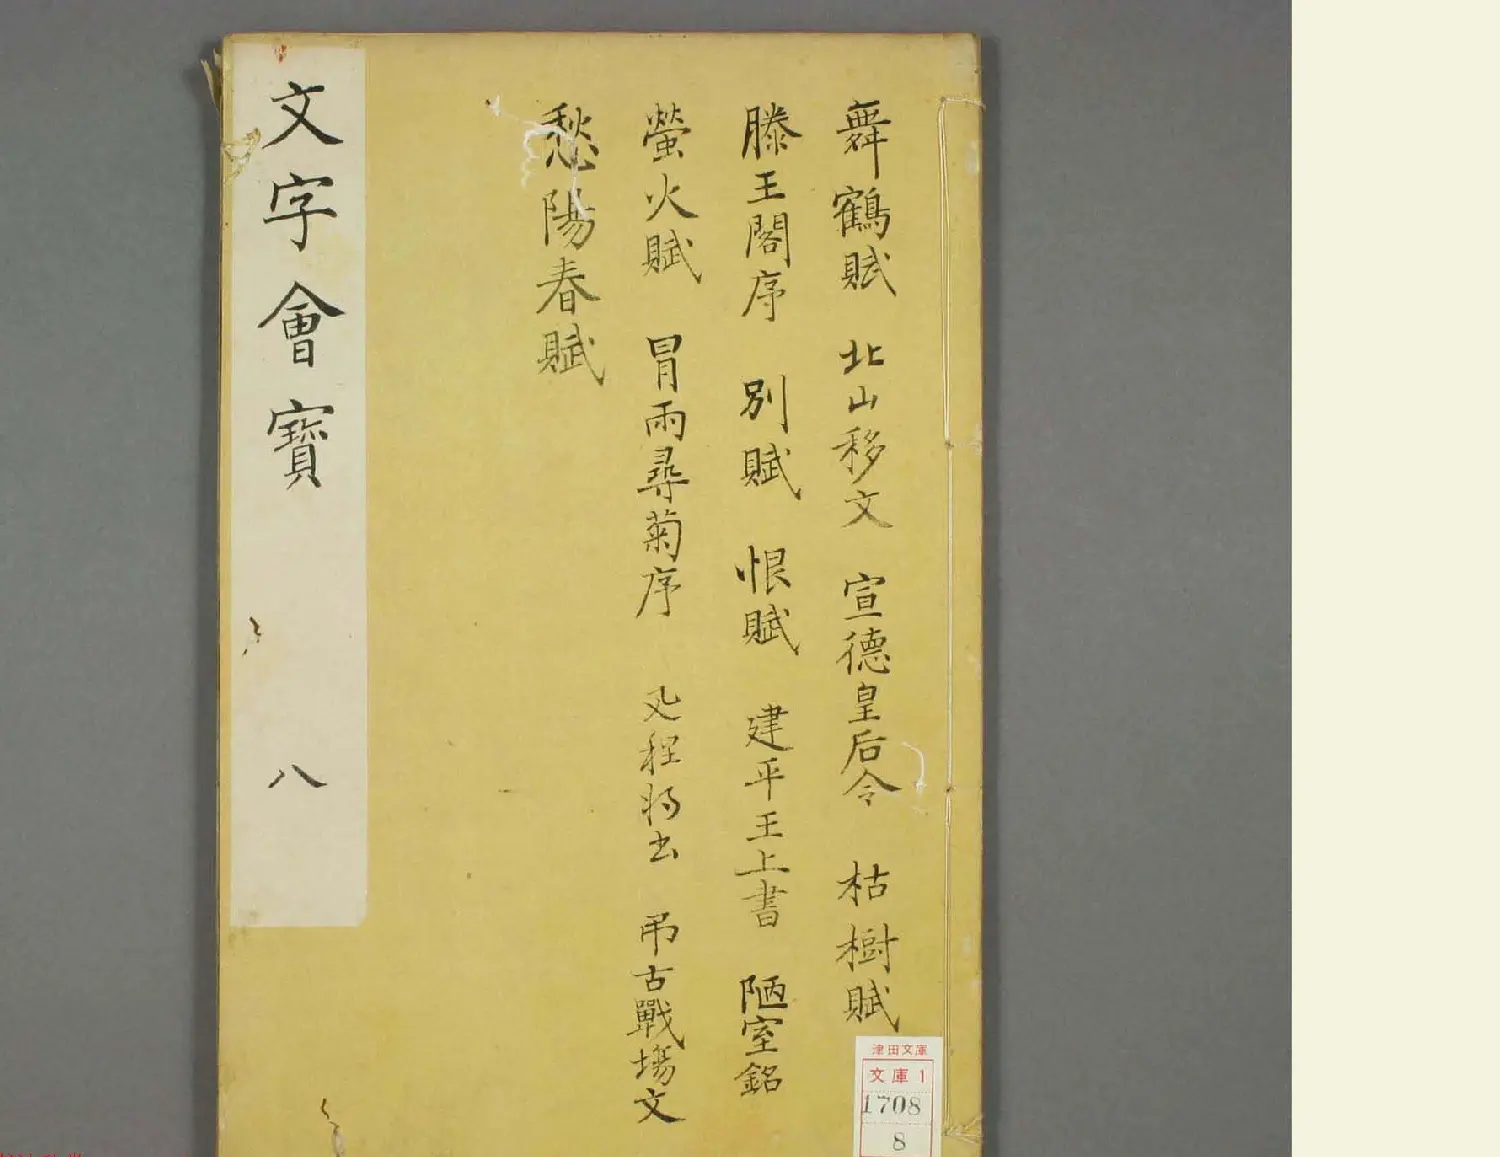 舞鶴賦 北山移文 宣德皇后令 枯樹賦
滕王閣序 別賦 恨賦 建平王上書 陋室銘
螢火賦 冒雨尋菊序 程將書 弔古戰場文
愁陽春賦
文字會寶 八
津田文庫
文庫1
1708
8